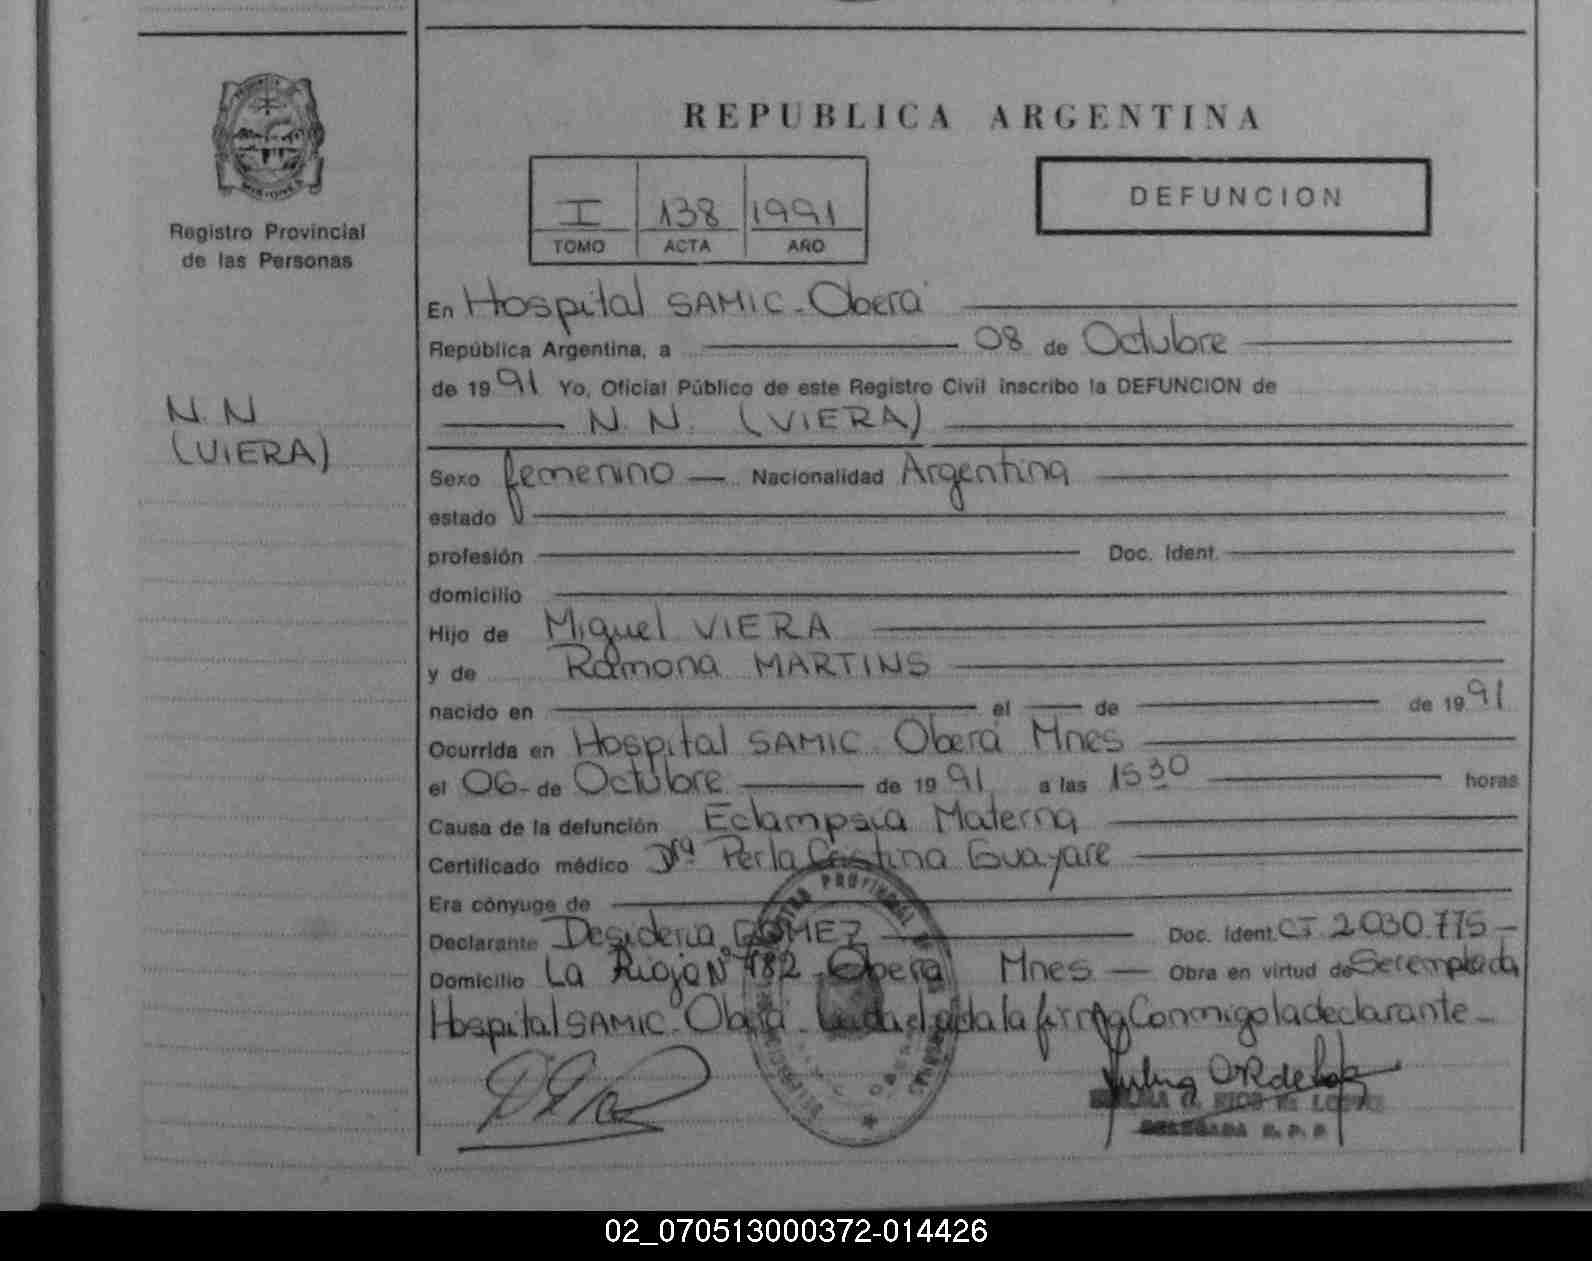 REPUBLICA ARGENTINA
I 138 1991
TOMO ACTA AÑO
DEFUNCION
MISIONES
Registro Provincial
de las Personas
N.N
(VIERA)
En Hospital SAMIC - Oberá
República Argentina, a 08 de Octubre
de 1991 Yo, Oficial Público de este Registro Civil inscribo la DEFUNCION de
N. N. (VIERA)
Sexo femenino Nacionalidad Argentina
estado
profesión Doc. Ident.
domicilio
Hijo de Miguel VIERA
y de Ramona MARTINS
nacido en el de de 1991
Ocurrida en Hospital SAMIC Oberá Mnes
el 06 de Octubre de 1991 a las 1530 horas
Causa de la defunción Eclampsia Materna
Certificado médico Dra Perla Cristina Guayare
Era cónyuge de
Declarante Desideria GOMEZ Doc. Ident. CI 2.030.775-
Domicilio La Rioja Nº 182 - Oberá Mnes Obra en virtud de Ser empleada
Hospital SAMIC - Oberá - Leída el acta la firma Conmigo la declarante -
DELEGADA R. P. P
02_070513000372-014426